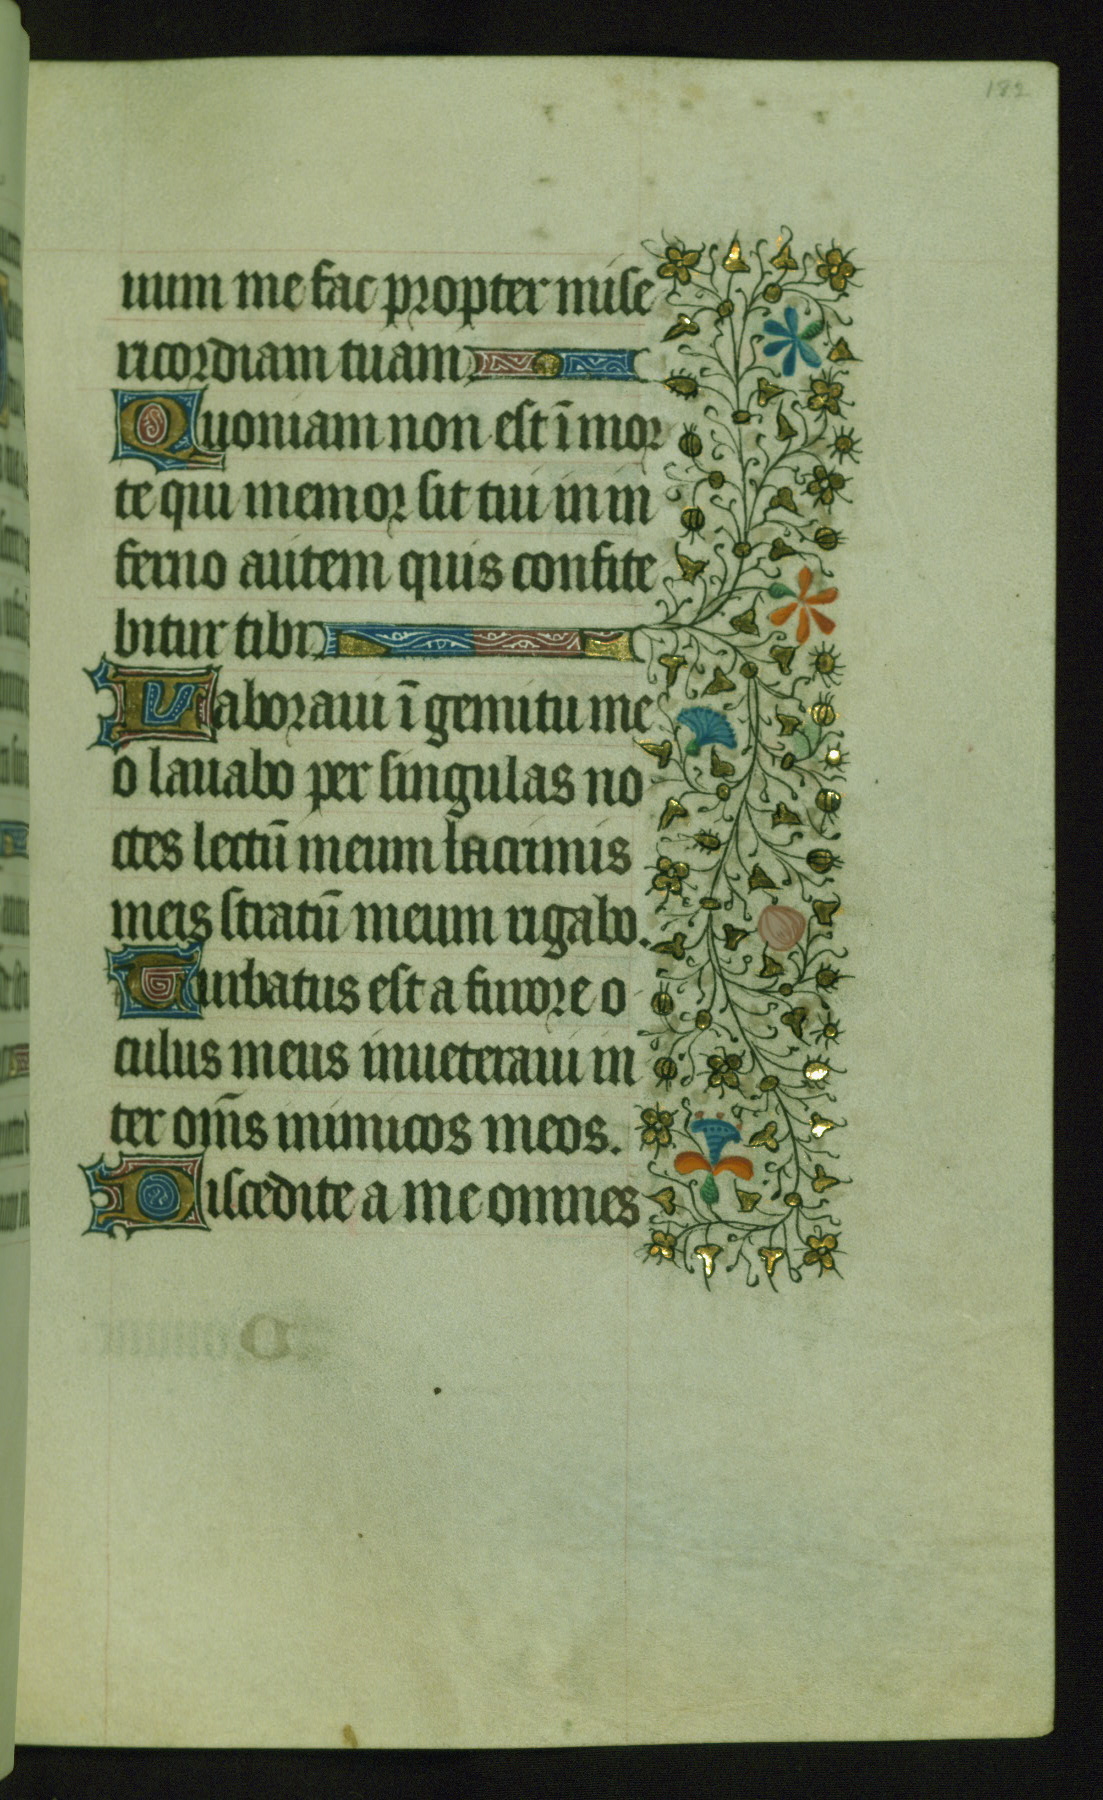 182
uum me fac propter mise
ricordiam tuam
Quoniam non est ī mor
te qui memor sit tui in in
ferno autem quis confite
bitur tibi
Laboraui ī gemitu me
o lauabo per singulas no
ctes lectū meum lacrimis
meis stratū meum rigabo.
Turbatus est a furore o
culus meus inueteraui in
ter om̄s inimicos meos.
Discedite a me omnes